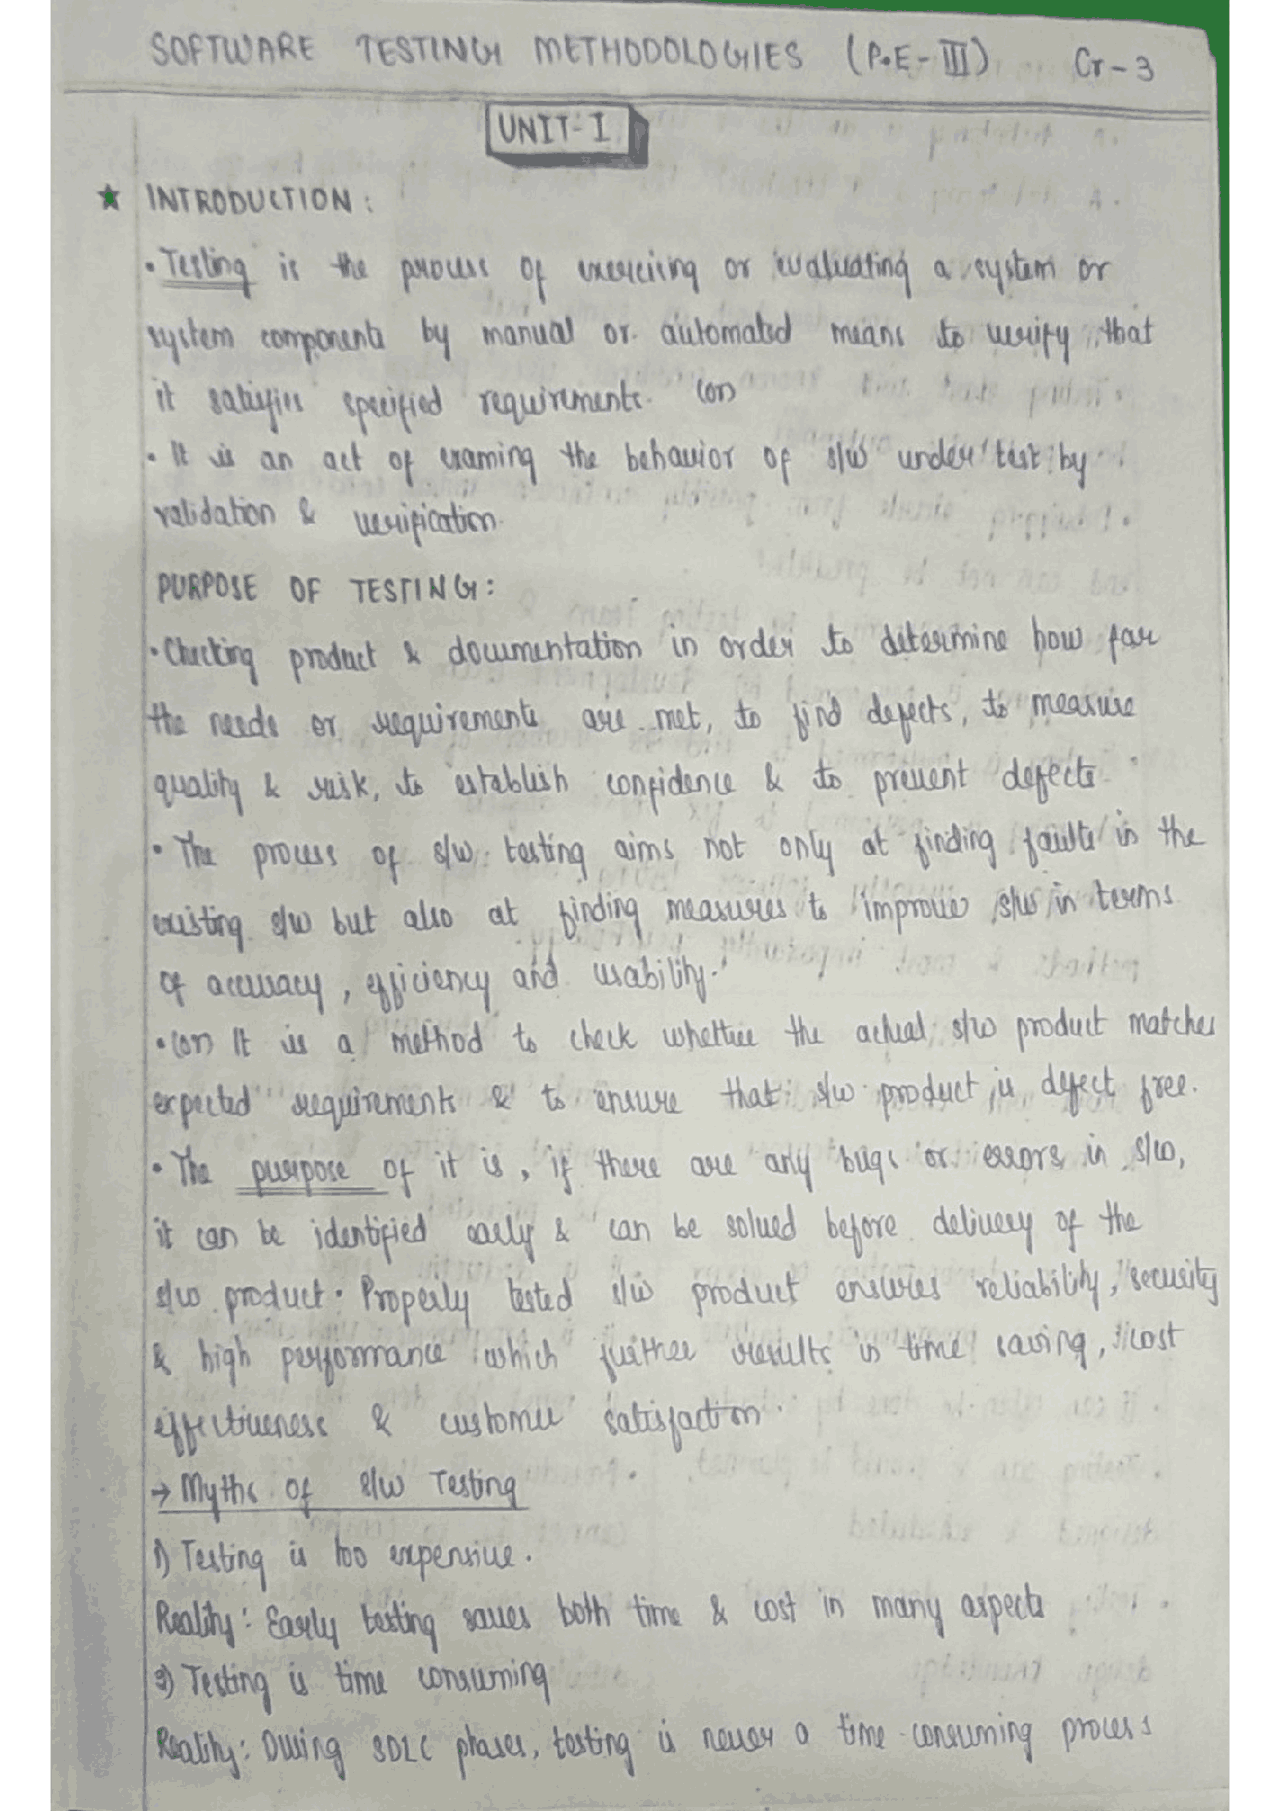 SOFTWARE TESTING METHODOLOGIES (P.E-III) Cr-3
UNIT-I
★ INTRODUCTION :
• Testing is the process of exercising or evaluating a system or
system components by manual or automated means to verify that
it satisfies specified requirements. (or)
• It is an act of examing the behavior of s/w under test by
validation & verification.
PURPOSE OF TESTING :
• Checking product & documentation in order to determine how far
the needs or requirements are met, to find defects, to measure
quality & risk, to establish confidence & to prevent defects.
• The process of s/w testing aims not only at finding faults in the
existing s/w but also at finding measures to improve s/w in terms
of accuracy, efficiency and usability.
• (or) It is a method to check whether the actual s/w product matches
expected requirements & to ensure that s/w product is defect free.
• The purpose of it is, if there are any bugs or errors in s/w,
it can be identified early & can be solved before delivery of the
s/w product. Properly tested s/w product ensures reliability, security
& high performance which further results in time saving, cost
effectiveness & customer satisfaction.
→ Myths of s/w Testing
1) Testing is too expensive.
Reality: Early testing saves both time & cost in many aspects
2) Testing is time consuming
Reality: During SDLC phases, testing is never a time-consuming process